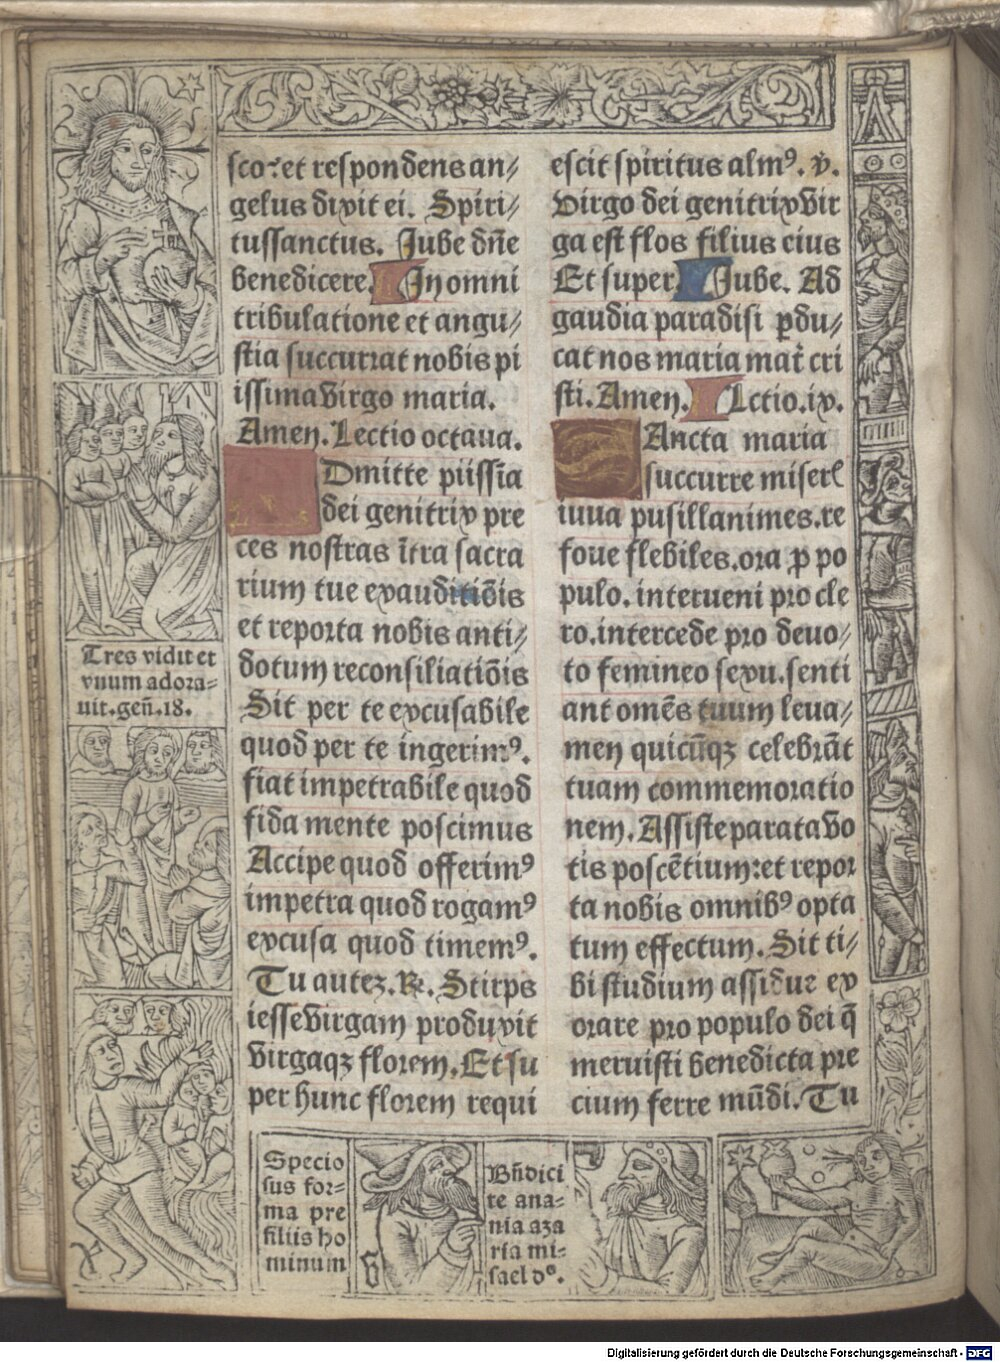 sco: et respondens an⸗
gelus dixit ei. Spiri⸗
tussanctus. Jube dn̄e
benedicere. In omni
tribulatione et angu⸗
stia succurrat nobis pi
issima virgo maria.
Amen. Lectio octaua.
Dmitte piissīa
dei genitrix pre
ces nostras ītra sacra
rium tue exauditiōis
et reporta nobis anti⸗
dotum reconsiliatiōis
Sit per te excusabile
quod per te ingerimꝰ.
fiat impetrabile quod
fida mente poscimus
Accipe quod offerimꝰ
impetra quod rogamꝰ
excusa quod timemꝰ.
Tu autez. ℟. Stirps
iesse virgam produxit
virgaqꝫ florem. Et su
per hunc florem requi
escit spiritus almꝰ. ℣.
Virgo dei genitrix vir
ga est flos filius eius
Et super. Jube. Ad
gaudia paradisi ꝑdu⸗
cat nos maria mat̄ cri
sti. Amen. Lctio. ix.
SAncta maria
succurre miserꝭ
iuua pusillanimes. re
foue flebiles. ora ꝓ po
pulo. interueni pro cle
ro. intercede pro deuo⸗
to femineo sexu. senti
ant omēs tuum leua⸗
men quicūqꝫ celebrāt
tuam commemoratio
nem. Assiste parata vo
tis poscētium: et repor
ta nobis omnibꝰ opta
tum effectum. Sit ti⸗
bi studium assidue ex
orare pro populo dei q̄
meruisti benedicta pre
cium ferre mūdi. Tu
Tres vidit et
vnum adora⸗
uit. gen̄. 18.
Specio
sus for⸗
ma pre
filiis ho
minum
Bn̄dici
te ana⸗
nia aza
ria mi⸗
sael dº.
Digitalisierung gefördert durch die Deutsche Forschungsgemeinschaft - DFG